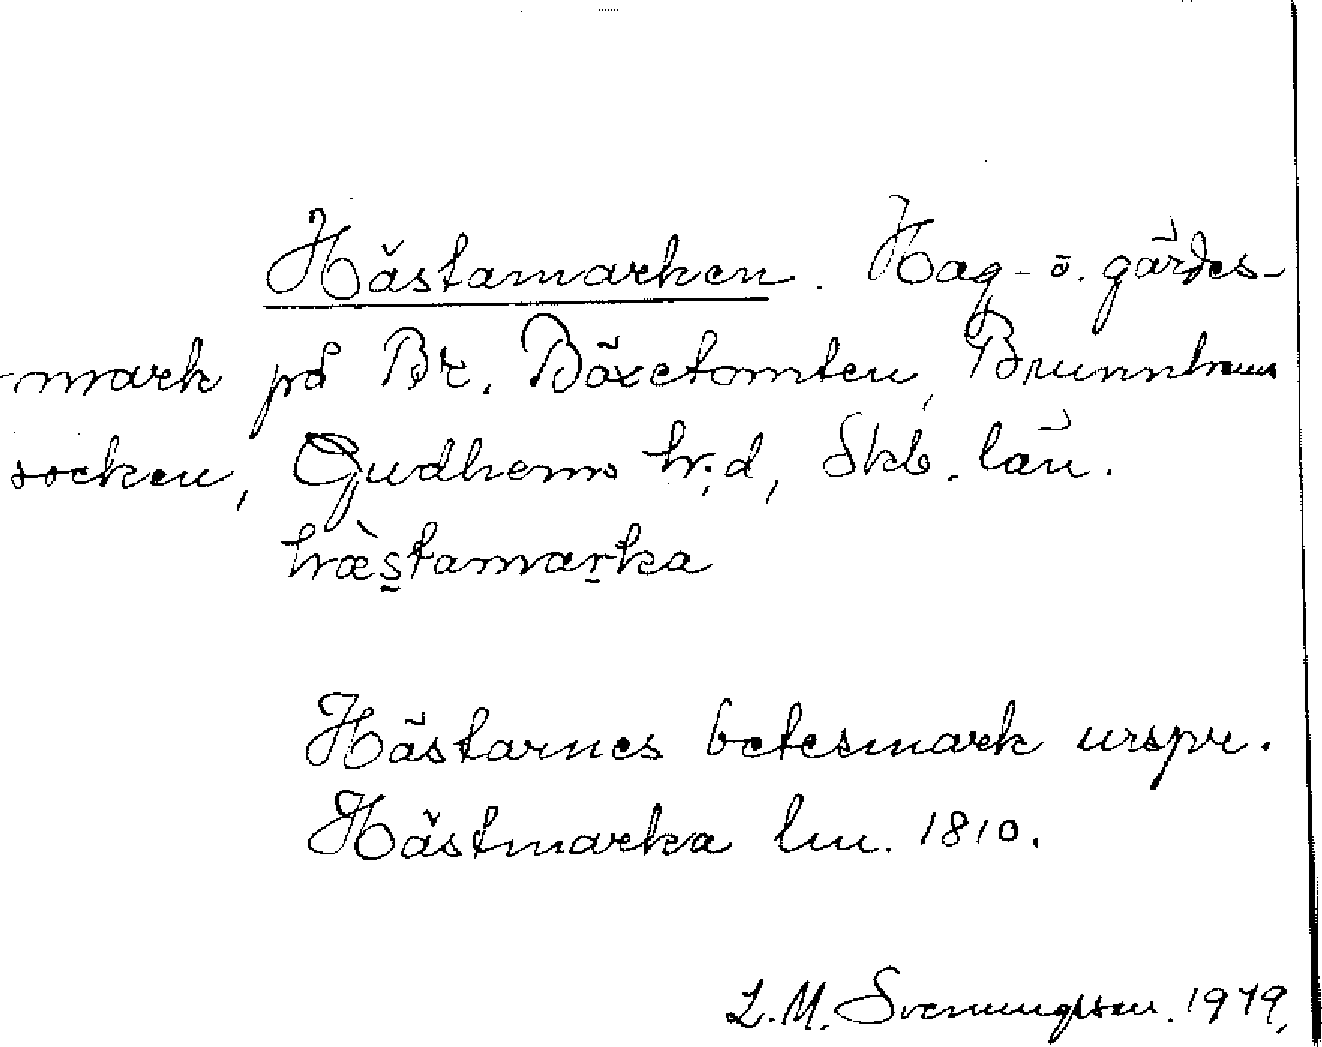 Hästamarken. Hag- o. gärdes-
-mark på Br. Böxetomten, Brunnhems
socken, Gudhems h:d, Skb. län.
hæ̀s̠tamar̠ka
Hästarnes betesmark urspr.
Hästmarka lm. 1810.
L.M. Svenungsson. 1979.